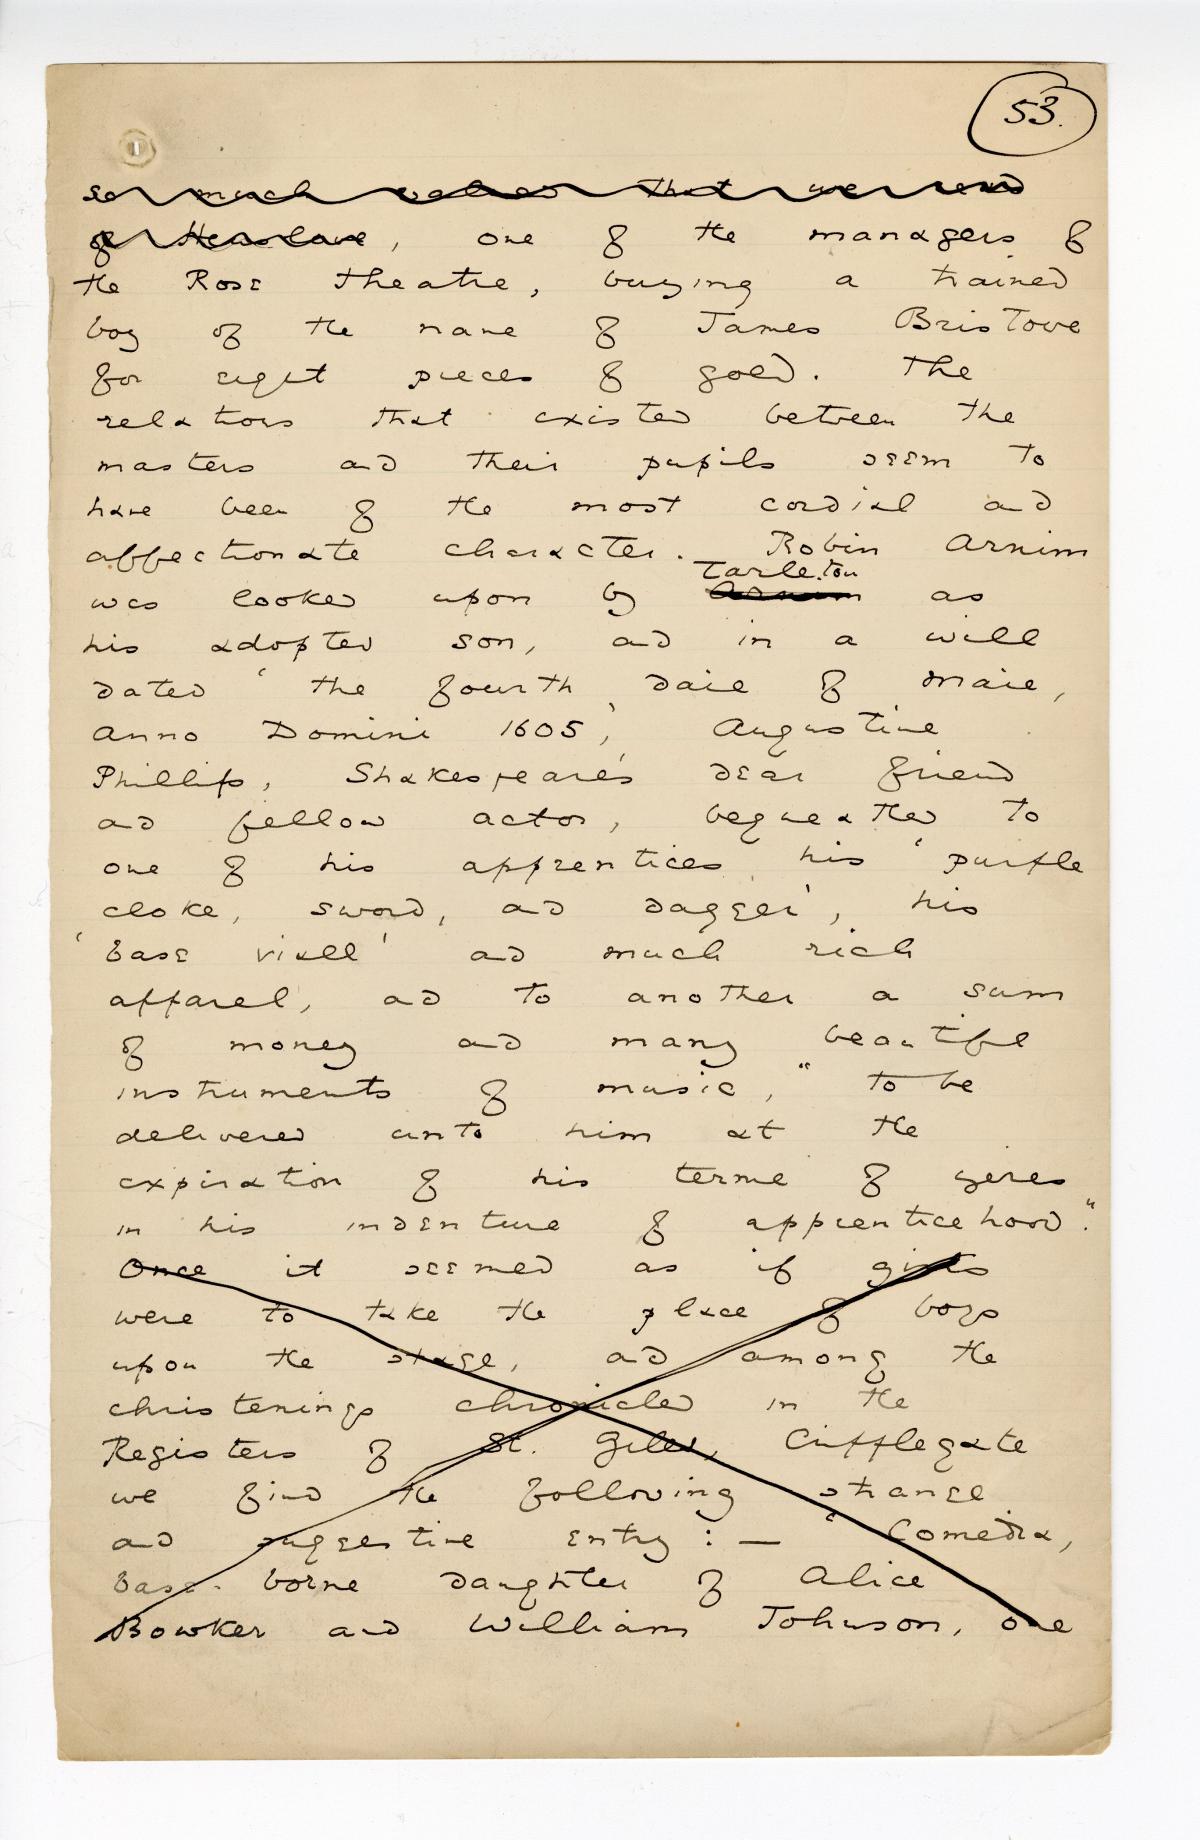 53.
so much valued that we read
of Henslowe, one of the managers of
the Rose Theatre, buying a trained
boy of the name of James Bristowe
for eight pieces of gold. The
relations that existed between the
masters and their pupils seem to
have been of the most cordial and
affectionate character. Robin Armin
Tarleton
was looked upon by Armin as
his adopted son, and in a will
dated 'the fourth daie of Maie,
Anno Domini 1605,' Augustine
Phillips, Shakespeare's dear friend
and fellow actor, bequeathed to
one of his apprentices his 'purple
cloke, sword, and dagger', his
'base viall' and much rich
apparel, and to another a sum
of money and many beautiful
instruments of music, "to be
delivered unto him at the
expiration of his terme of yeres
in his indenture of apprenticehood".
Once it seemed as if girls
were to take the place of boys
upon the stage, and among the
christenings chronicled in the
Registers of St. Giles, Cripplegate
we find the following strange
and suggestive entry: — "Comedia,
base-borne daughter of Alice
Bowker and William Johnson, one